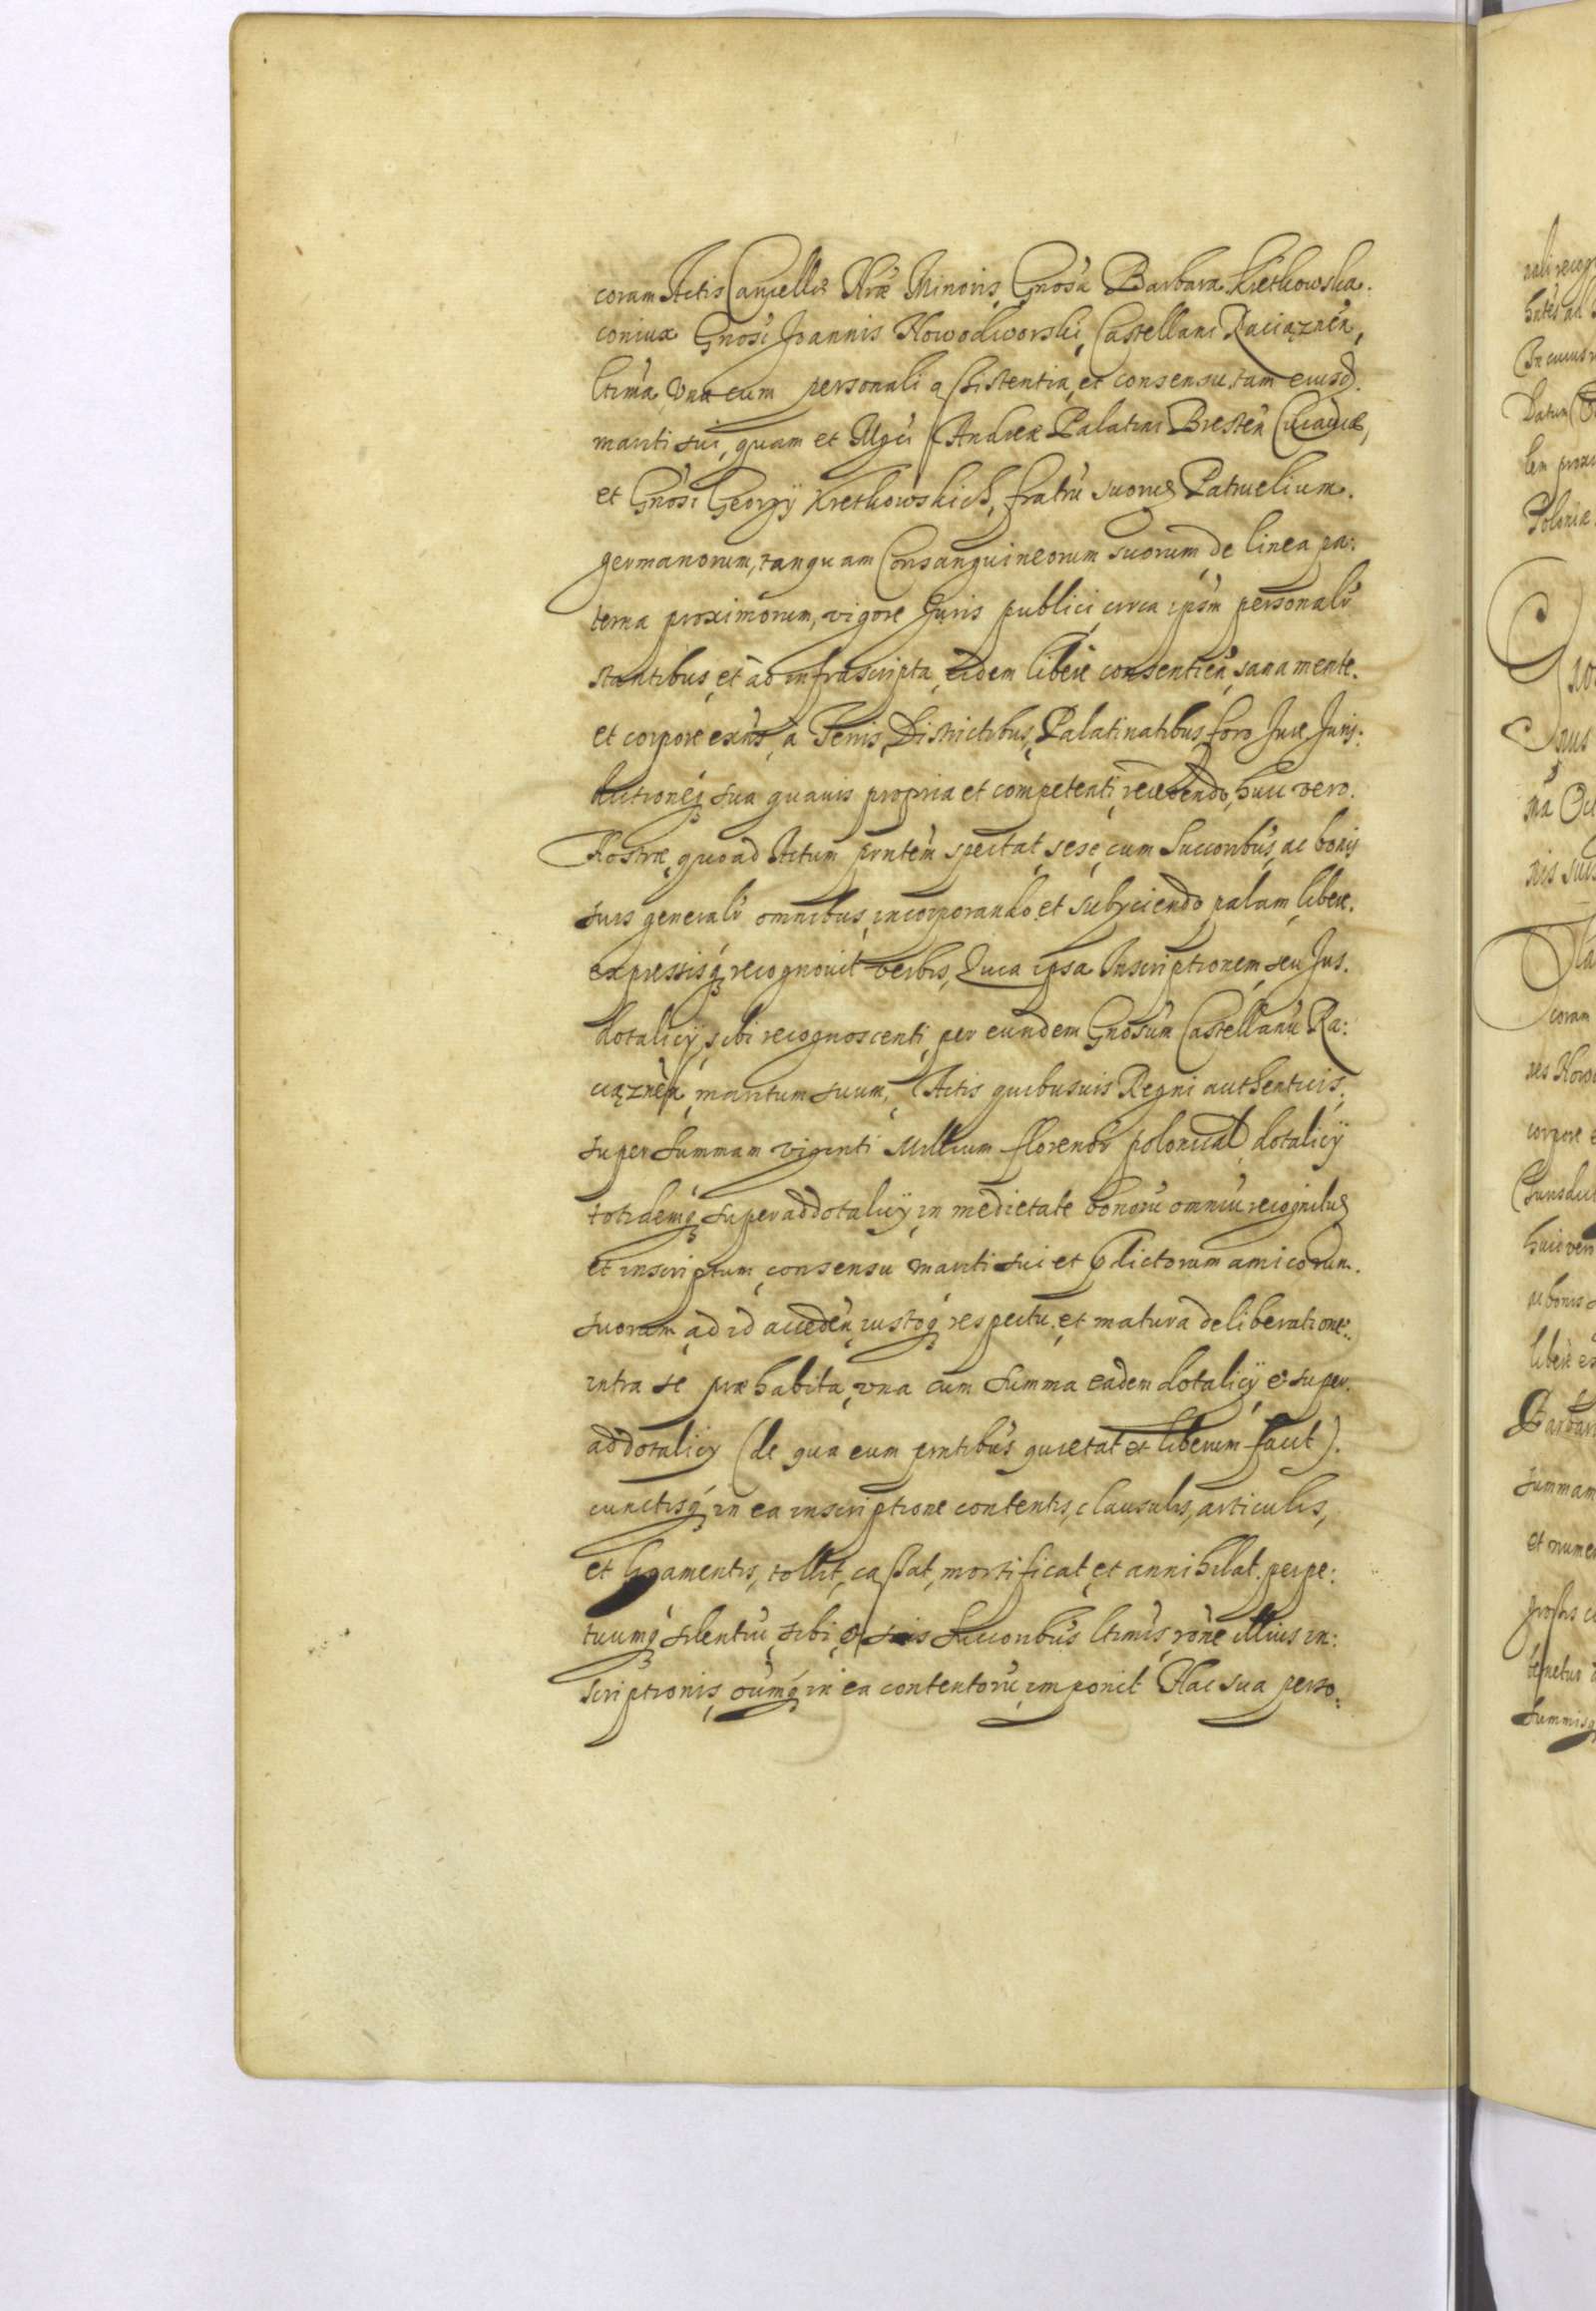 coram Actis Cancellae Nrae Minoris, Gnosa Barbara Kretkowska
coniux Gnosi Joannis Nowodworski, Castellani Raciąznen,
ltima, Una cum personali assistentia, et consensu, tam eiusd.
mariti sui, quam et Mgci Andreae Palatini Bresten Cuiaviae,
et Gnosi Georgÿ Kretkowskich, fratru suoru Patruelium.
germanorum, tanquam Consanguineorum suorum, de linea pa:
terna proximorum, vigore Juris publici, circa ipsm personalr
stantibus, et ad infrascripta, eidem libere consentien, sana mente.
et corpore exns, à Terris, Districtibus, Palatinatibus, foro, Jure, Juris:
dictioneq sua quavis propria et competenti, recedendo, huic vero.
Nostrae, quo ad Actum prntem spectat, sese, cum Succoribus, ac bonis
suis generalr omnibus, incorporando, et subÿciendo, palam, libere.
expressisq recognovit verbis, Quia ipsa Inscriptionem, seu Jus.
dotalicÿ, sibi recognoscenti, per eundem Gnosum Castellanu Ra:
ciąznen, maritum suum, Actis quibusvis Regni authenticis,
super Summam viginti Millium florenor polonical, dotalicÿ
totidemq superaddotalicÿ, in medietate bonoru omniu recognitu
et inscriptum, consensu mariti sui et pdictorum amicorum.
suorum, ad id acceden, iustoq respectu, et matura deliberatione
intra se praehabita, una cum Summa eadem dotalicÿ et super.
addotalicÿ (de qua eum prntibus quietat et liberum facit).
cunctisq in ea inscriptione contentis, clausulis, articulis,
et ligamentis, tollit, cassat, mortificat, et annihilat. perpe:
tuumq silentiu, sibi, et suis Succoribus ltimis, rone illius in:
scriptionis, oiumq in ea contentoru, imponit Hac sua perso: